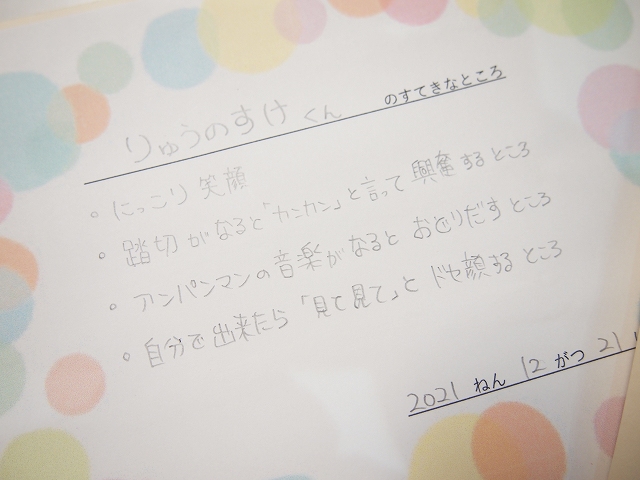 りゅうのすけ くん のすてきなところ
。にっこり 笑顔
。踏切 が なると「カンカン」と言って 興奮 する ところ
。アンパンマンの 音楽が なると おどりだす ところ
。自分で 出来たら 「見て見て」と ドヤ顔する ところ
2021 ねん 12 がつ 21